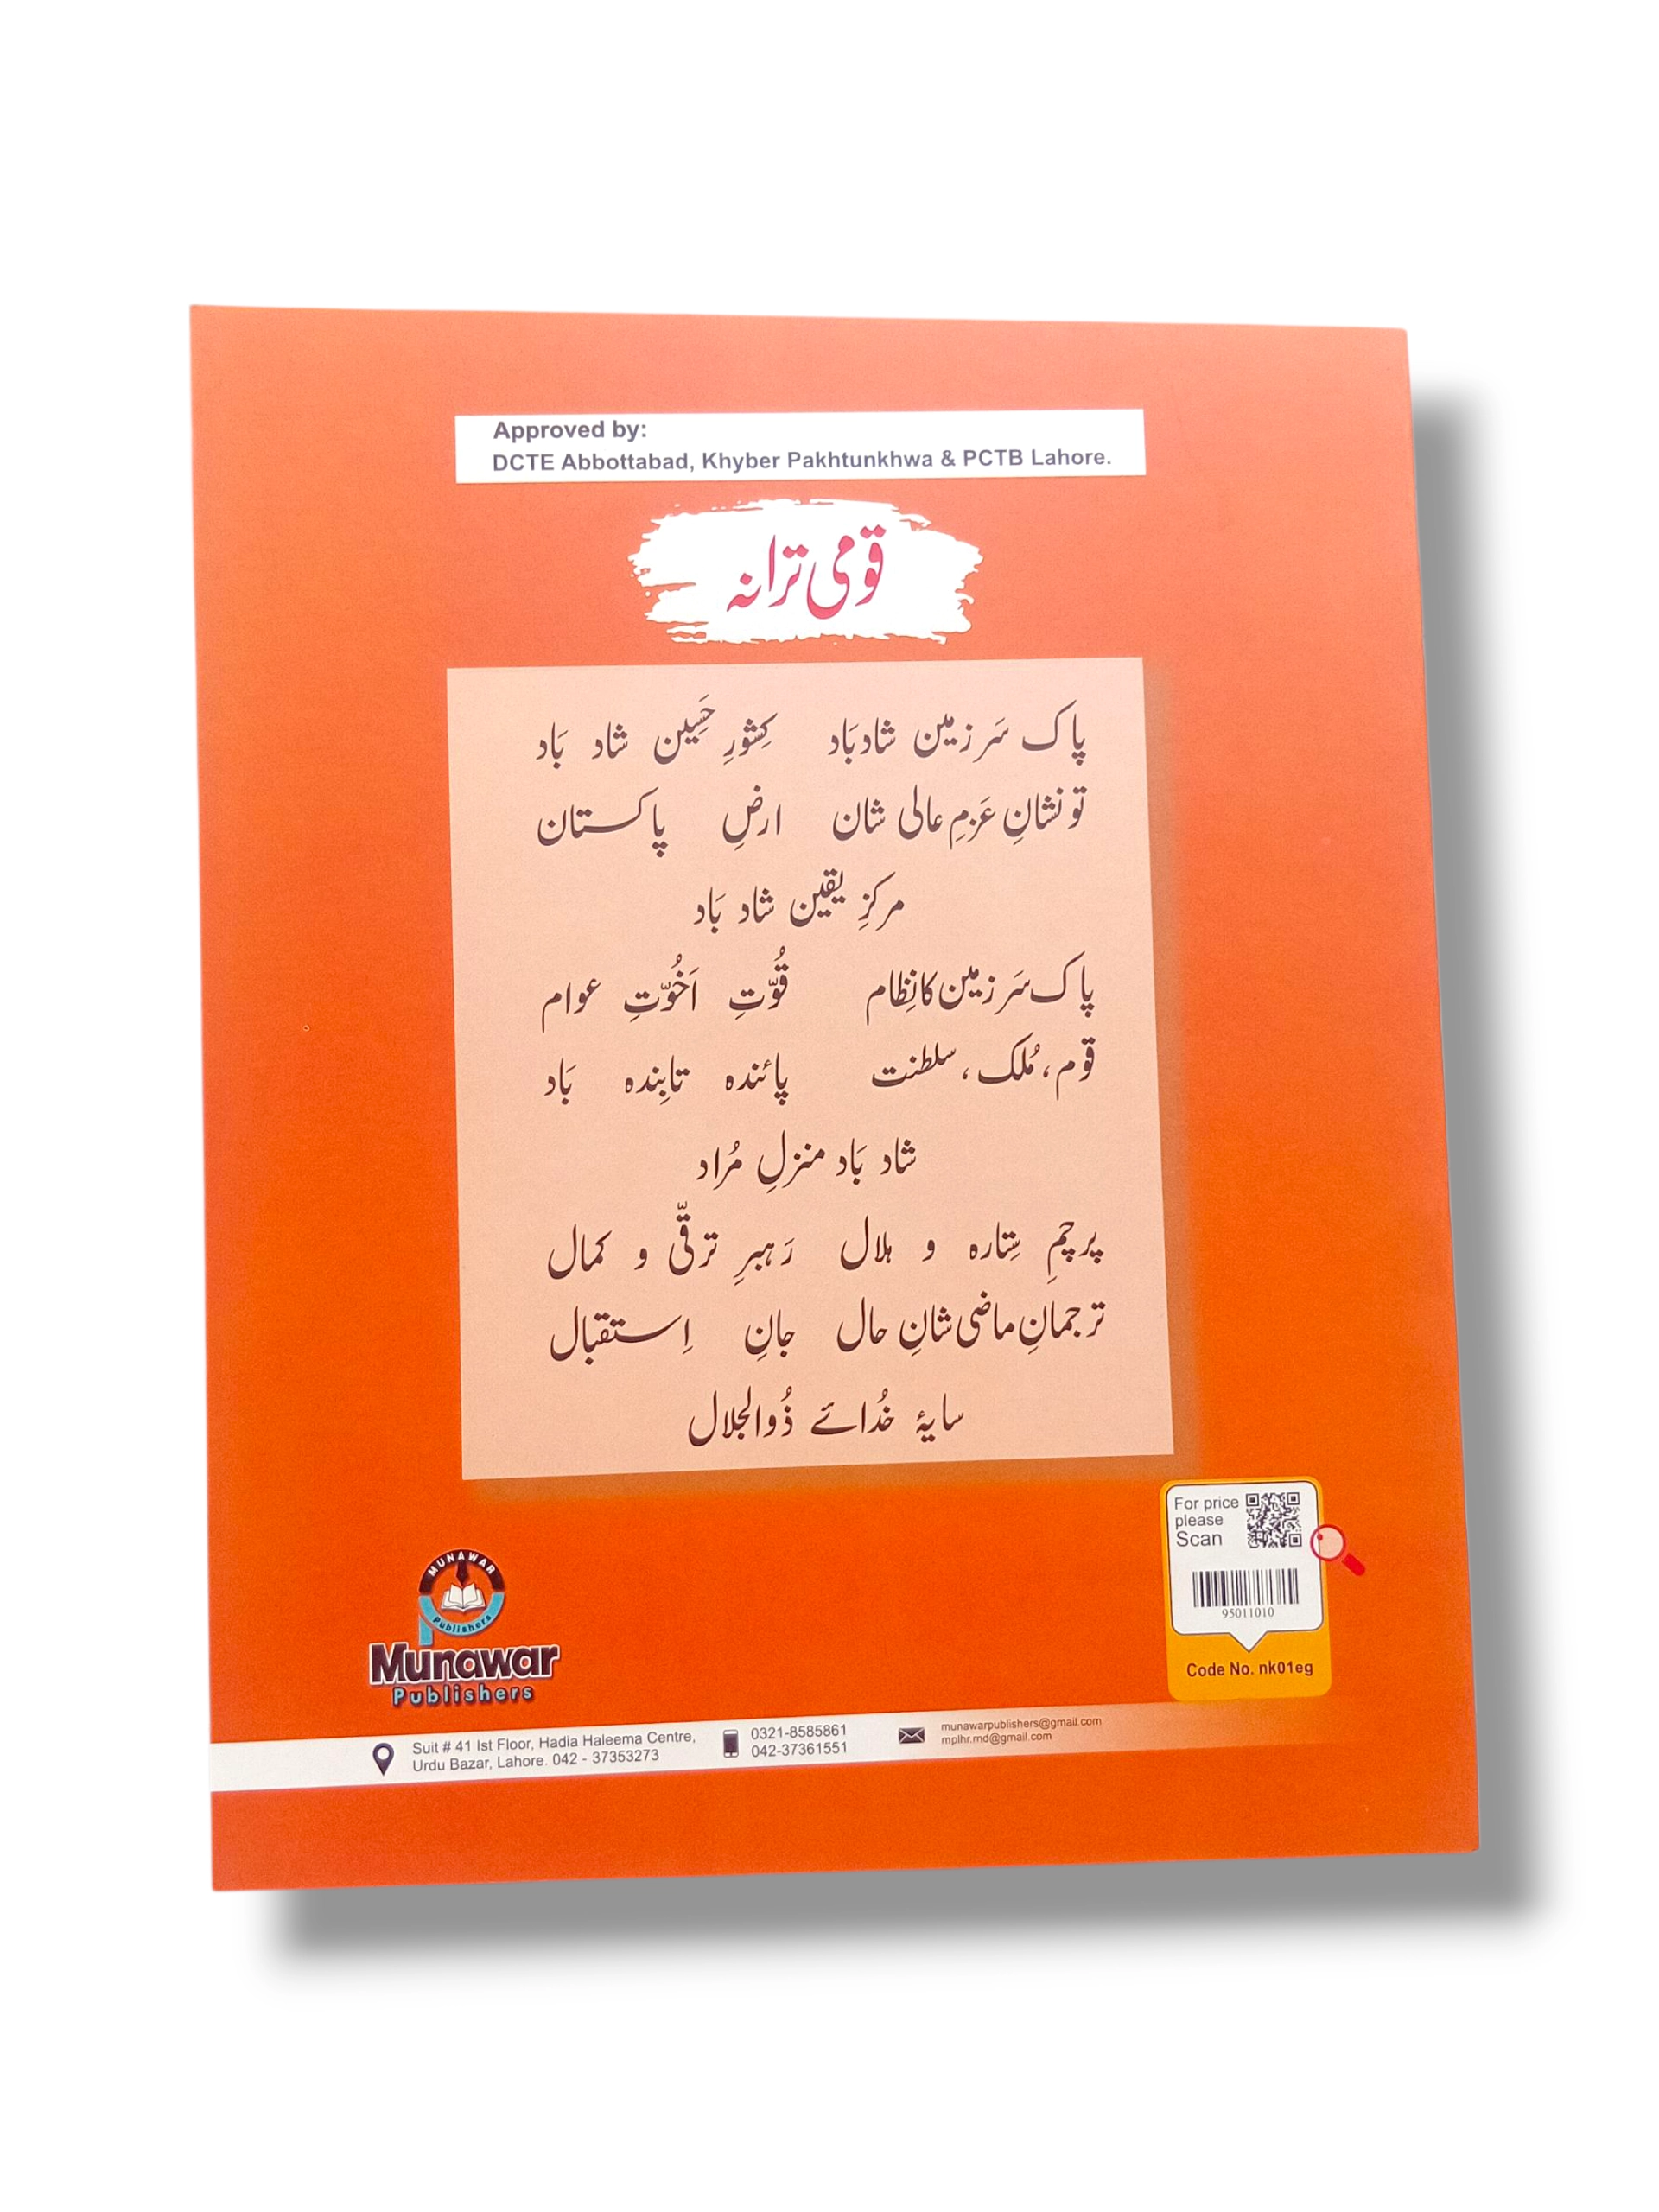 Approved by:
DCTE Abbottabad, Khyber Pakhtunkhwa & PCTB Lahore.
قومی ترانہ
پاک سَرزمین شادبَاد کِشورِ حَسِین شاد بَاد
تو نشانِ عَزمِ عالی شان ارضِ پاکستان
مرکزِ یقین شاد بَاد
پاک سَرزمین کا نِظام قُوّتِ اَخُوّتِ عوام
قوم، مُلک، سلطنت پائندہ تابِندہ بَاد
شاد بَاد منزلِ مُراد
پرچمِ سِتارہ و ہلال رَہبرِ ترقّی و کمال
ترجمانِ ماضی شانِ حال جانِ اِستقبال
سایۂ خُدائے ذُوالجلال
For price
please
Scan
95011010
Code No. nk01eg
MUNAWAR
Publishers
Munawar
Publishers
Suit # 41 Ist Floor, Hadia Haleema Centre,
Urdu Bazar, Lahore. 042 - 37353273
0321-8585861
042-37361551
munawarpublishers@gmail.com
mplhr.rnd@gmail.com